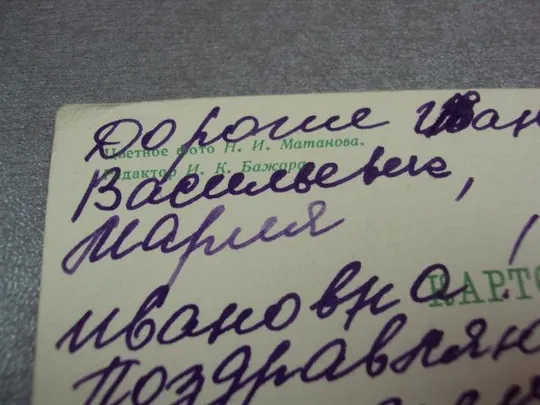 Дорогие Иван
Цветное фото Н. И. Матанова.
Редактор И. К. Бажора
Васильевич,
Мария
Ивановна!
КАРТО
Поздравляю